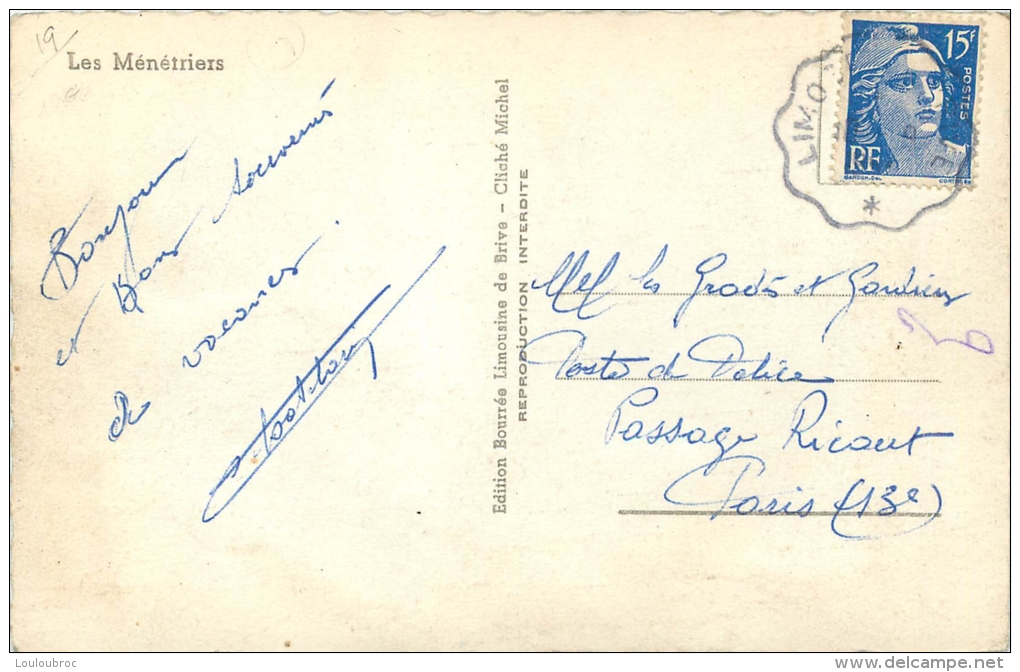 19
Les Ménétriers
Bonjour
et Bons souvenirs
de vacances.
Edition Bourrée Limousine de Brive – Cliché Michel
REPRODUCTION INTERDITE
LIMO
15F
POSTES
RF
les Gradés et Gardiens
Poste de Police
Passage Ricaut
Paris (13e)
Louloubroc
http://www.delcampe.net